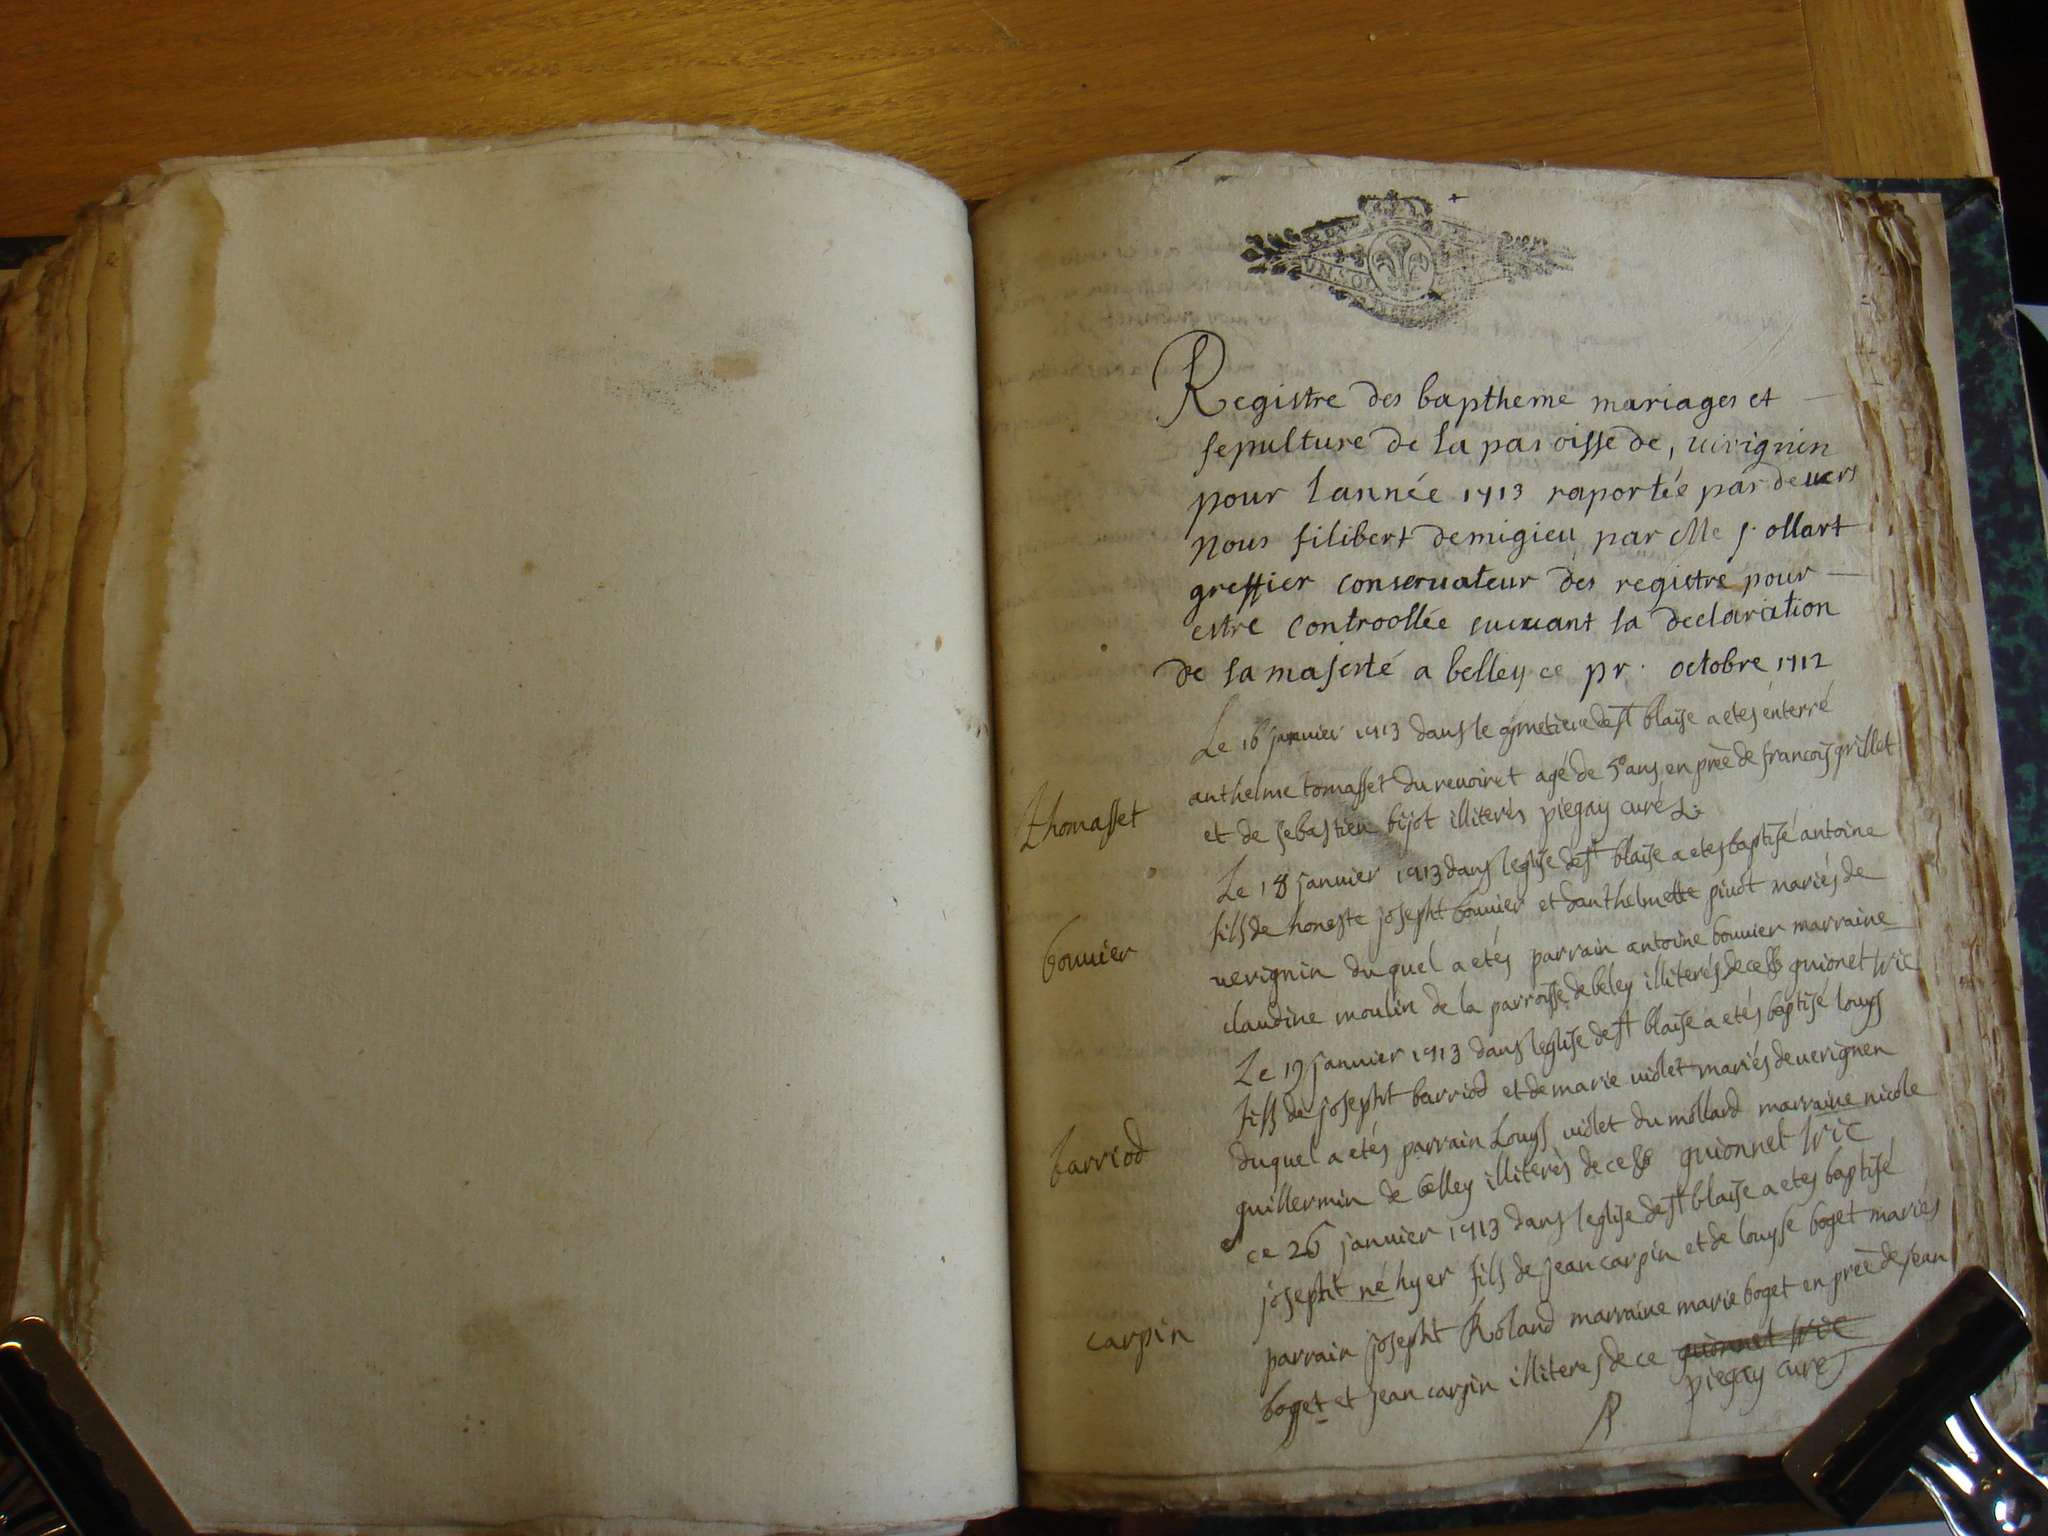 VN SOL
Registre des baptheme mariages et
sepulture de la paroisse de, virignin
pour lannée 1713 raportée par devers
nous filibert demigieu par Me ollart
greffier conservateur des registre pour
estre controollée suivant la declaration
de sa majesté a belley ce pr. octobre 1712
Le 16 janvier 1713 dans le cymetiere de st blaise a etes enterré
thomasset
anthelme tomasset du revoiret agé de 50 ans en prēe de francois grillet
et de sebastien bijot illiterés piegay curé
Le 18 janvier 1713 dans leglise de st blaise a etes baptisé antoine
fils de honeste josepht bouvier et danthelmette pivot mariés de
bouvier
verignin duquel a etés parrain antoine bouvier marraine
claudine moulin de la parroisse de beley illiterés de ce guionet vic
Le 19 janvier 1713 dans leglise de st blaise a etés baptisé louys
fils de josepht barriod et de marie violet mariés de verignen
barriod
duquel a etés parrain Louys violet du mollard marraine nicole
guillermin de belley illiterés de ce guionnet vic
ce 26 janvier 1713 dans leglise de st blaise a etes baptisé
josepht né hyer fils de jean carpin et de louyse boget mariés
carpin
parrain josepht Roland marraine marie boget en prēe de jean
boget et jean carpin illiteres de ce guionnet vic
piegay curé